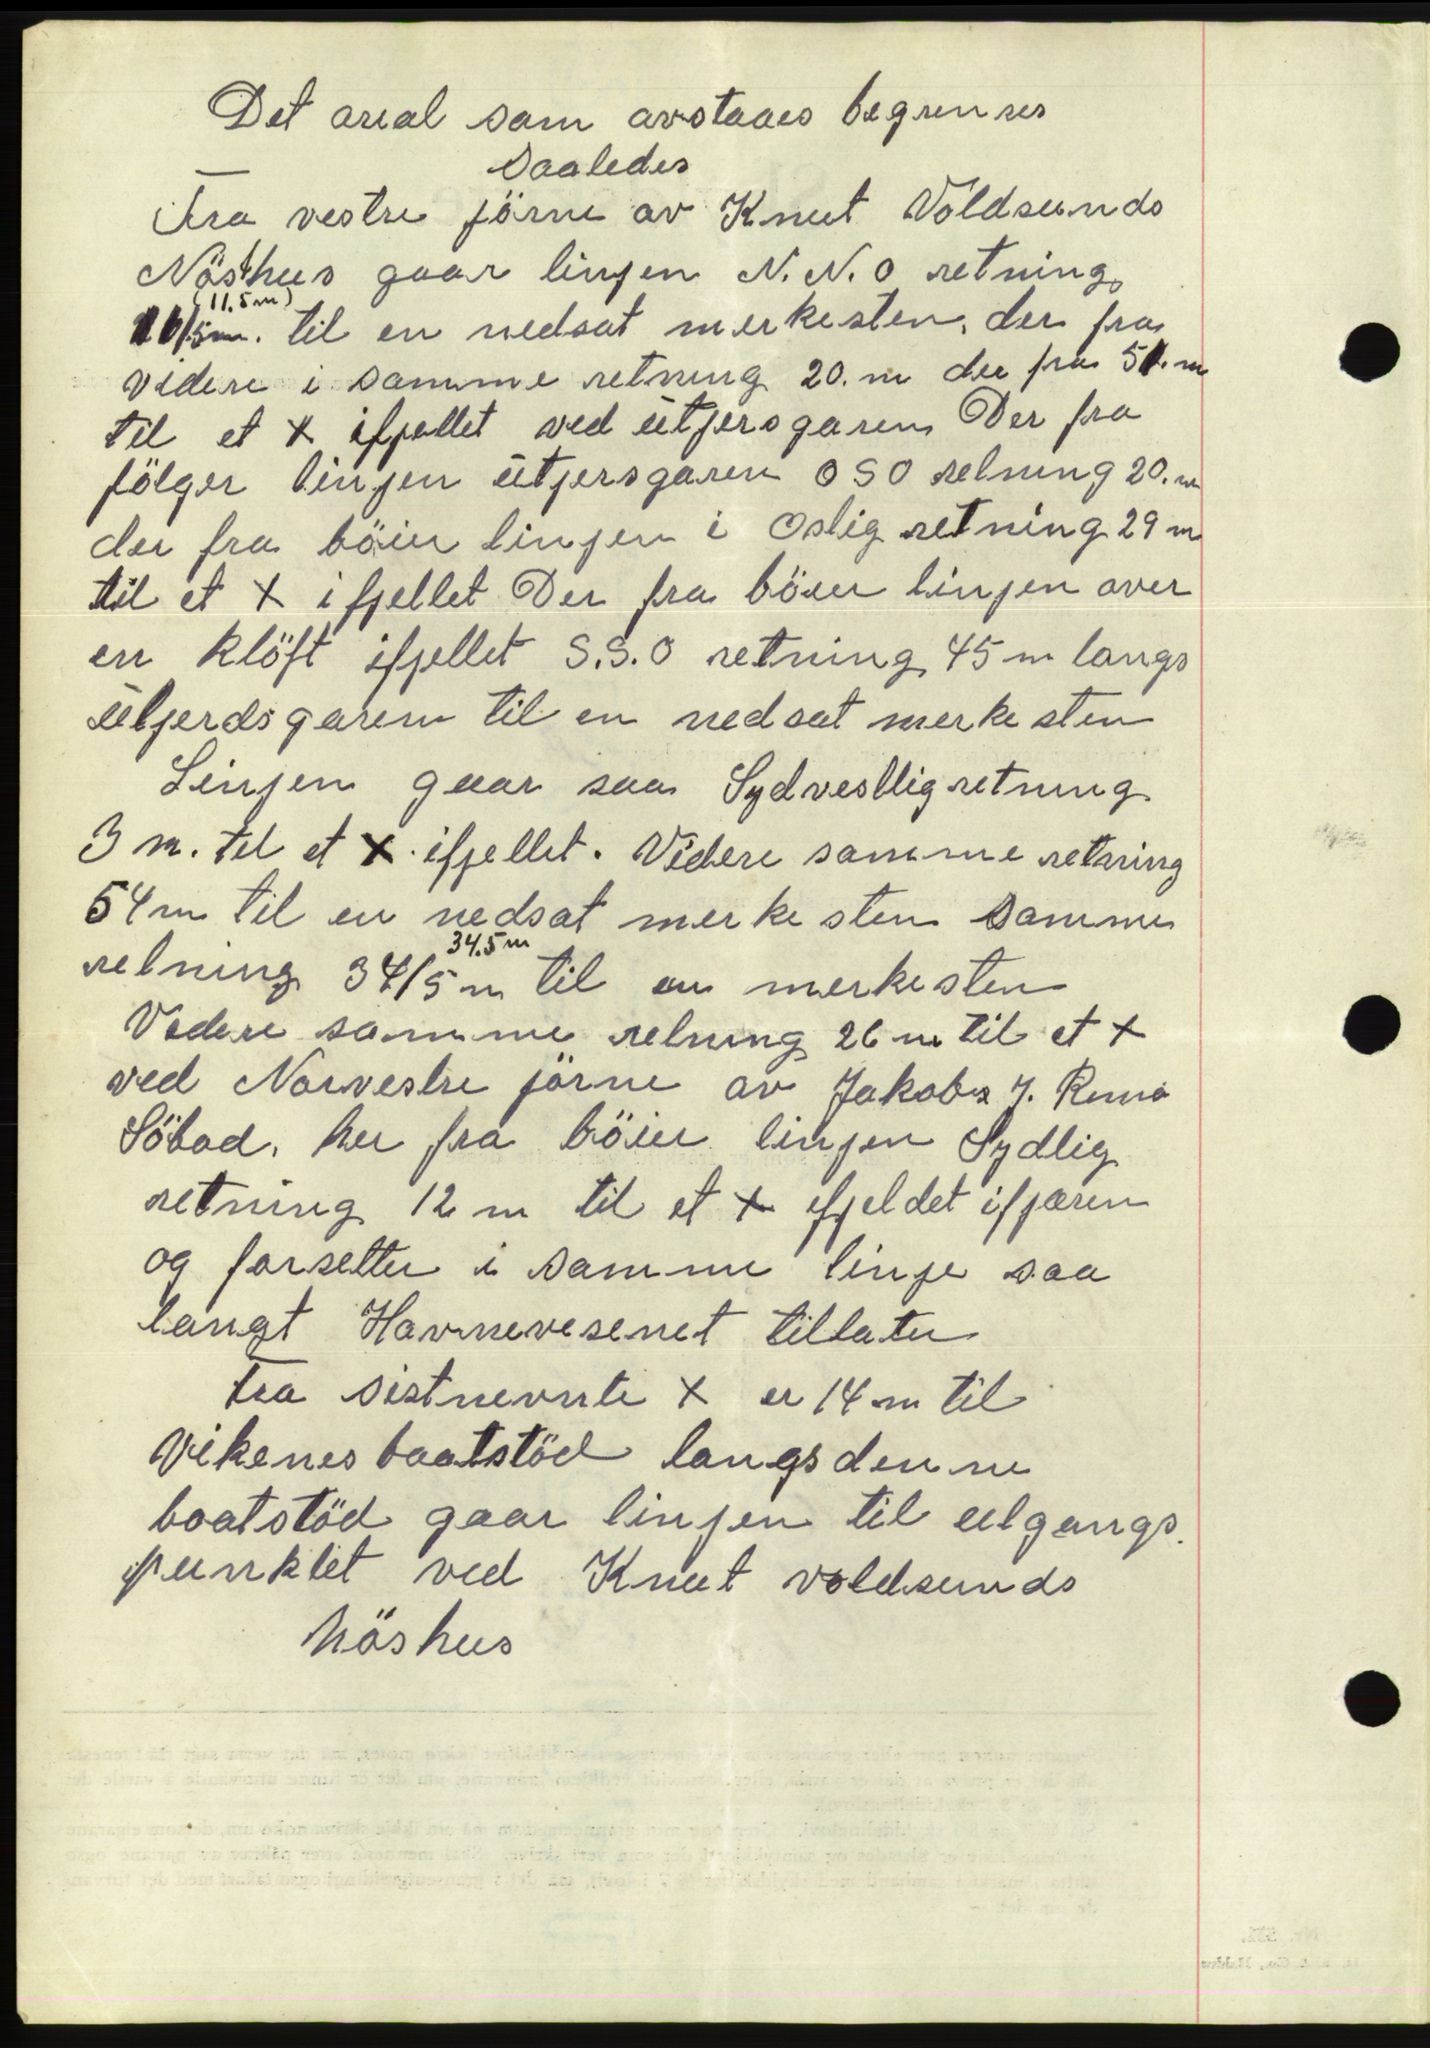 Det areal som avstaaes begrenses
saaledes
Fra vestre jörne av Knut Voldsunds
Nösthus gaar linjen N.N.O retning
(11.5 m)
til en nedsat merkesten, der fra
videre i samme retning 20. m der fra 51. m
til et x ifjellet ved ütjersgaren Der fra
fölger linjen ütjersgaren OSO retning 20. m
der fra böier linjen i Oslig retning 29 m
til et x i fjellet Der fra böier linjen over
en klöft ifjellet S.S.O retning 45 m langs
ütjerdsgaren til en nedsat merkesten
Linjen gaar saa Sydvestlig retning
3 m. til et x ifjellet. Videre samme retning
54 m til en nedsat merkesten samme
34.5 m
retning 34/5 m til en merkesten
Videre samme retning 26 m til et x
ved Norvestre jörne av Jakobs J.
Söbod, her fra böier linjen Sydlig
retning 12 m til et x ifjeldet ifjæren
og forsetter i samme linje saa
langt Havnevesenet tillater
Fra sistnevnte x er 14 m til
Vikenes baatstöd langs denne
baatstöd gaar linjen til utgangs
punktet ved Knut voldsunds
Nöshus